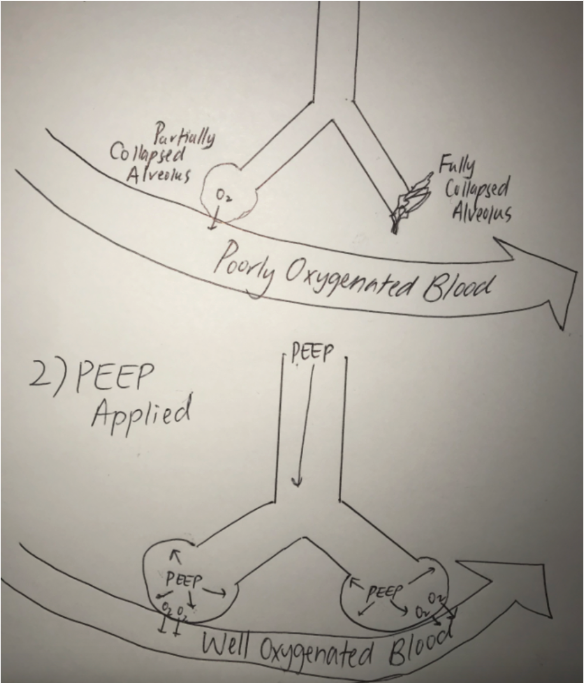 Partially
Collapsed
Alveolus
O₂
Fully
Collapsed
Alveolus
Poorly Oxygenated Blood
2) PEEP
Applied
PEEP
PEEP
O₂ O₂
PEEP
O₂ O₂
Well Oxygenated Blood